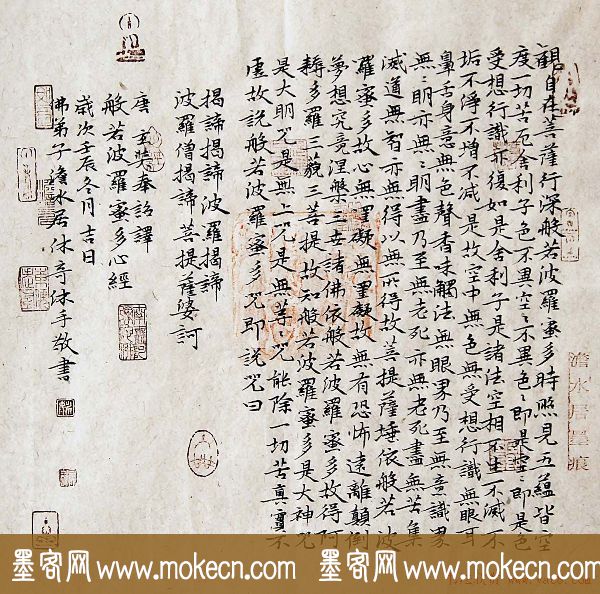 觀自在菩薩行深般若波羅蜜多時照見五蘊皆空
度一切苦厄舍利子色不異空〻不異色〻即是空〻即是色
受想行識亦復如是舍利子是諸法空相不生不滅不
垢不淨不增不減是故空中無色無受想行識無眼耳
鼻舌身意無色聲香味觸法無眼界乃至無意識界
無〻明亦無〻明盡乃至無老死亦無老死盡無苦集
滅道無智亦無得以無所得故菩提薩埵依般若波
羅蜜多故心無罣礙無罣礙故無有恐怖遠離顛倒
夢想究竟涅槃三世諸佛依般若波羅蜜多故得阿
耨多羅三藐三菩提故知般若波羅蜜多是大神咒
是大明咒是無上咒是無等〻咒能除一切苦真實不
虛故說般若波羅蜜多咒即說咒曰
揭諦揭諦波羅揭諦
波羅僧揭諦菩提薩婆訶
唐玄奘奉詔譯
般若波羅蜜多心經
歲次壬辰冬月吉日
佛弟子澹水居休奇休手敬書
澹水居墨痕
墨客网 www.mokecn.com 墨客网 www.mokecn.com